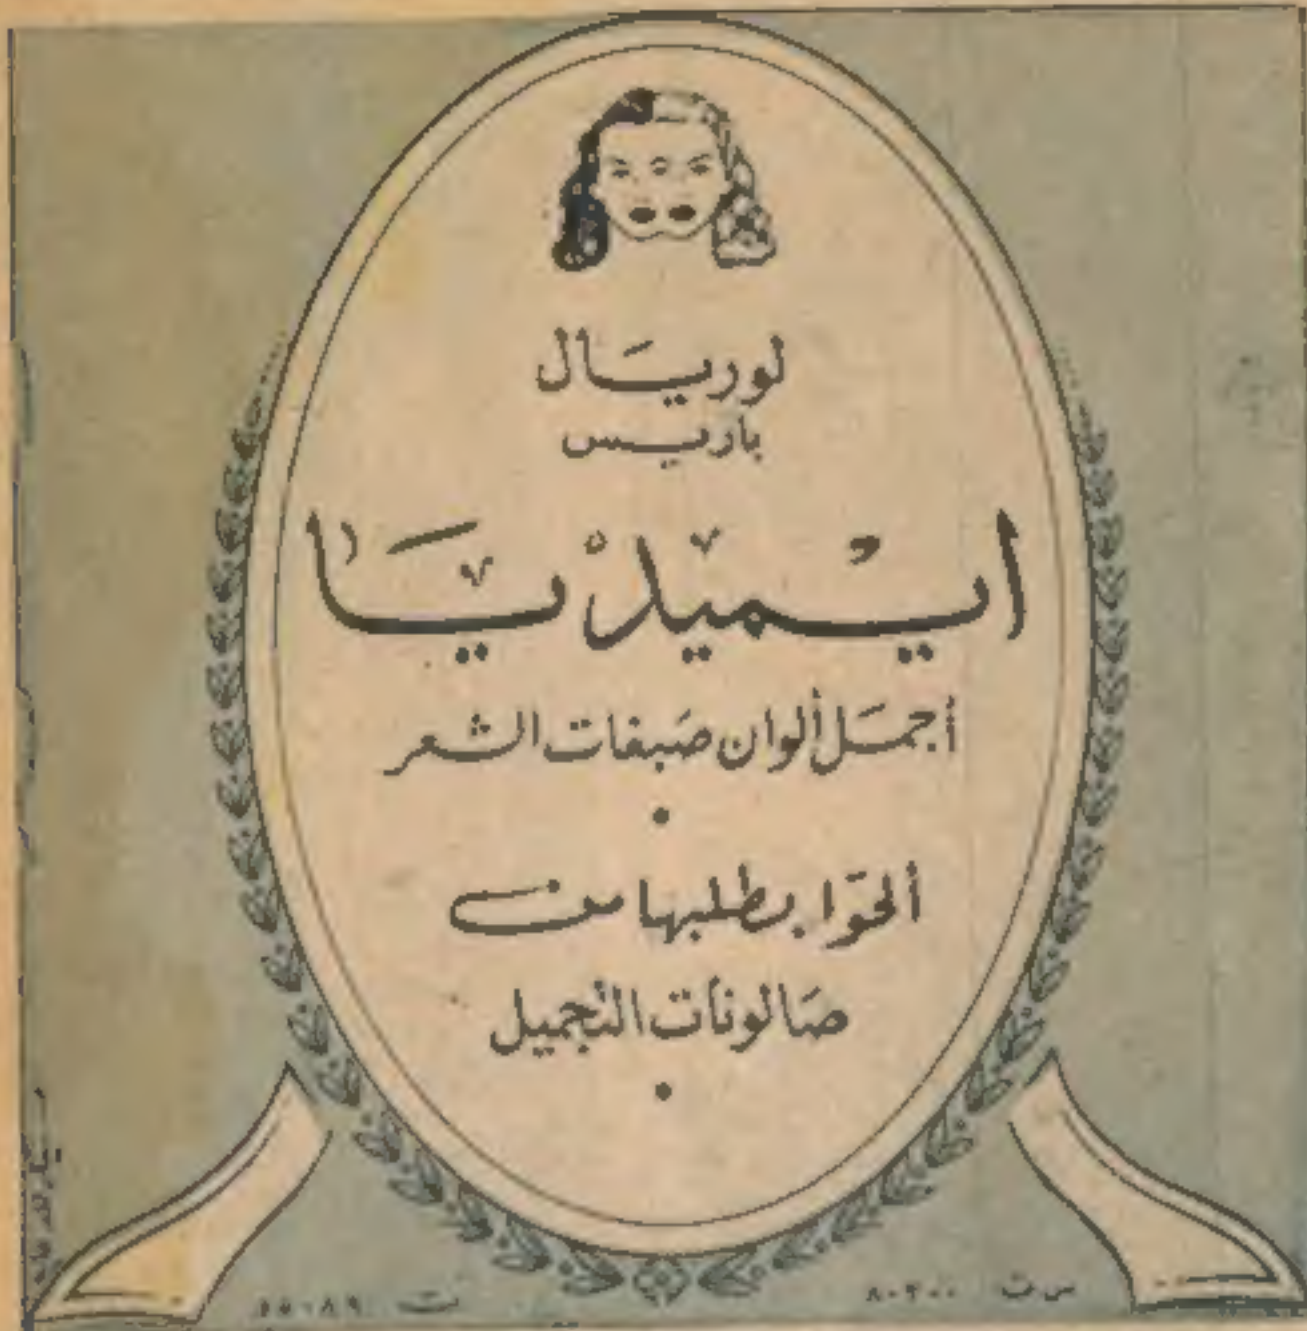 لوريَال
باريس
ايميديَا
أجمَل ألوان صَبغات الشعر
ألحّوا بطلبها من
صَالونات التجميل
س ت ٨٠٣٠٠
ت ٤٥٠٨٩